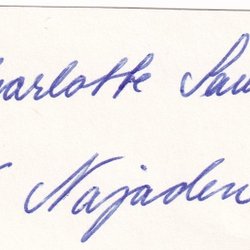 arlotte Sau
Najaden